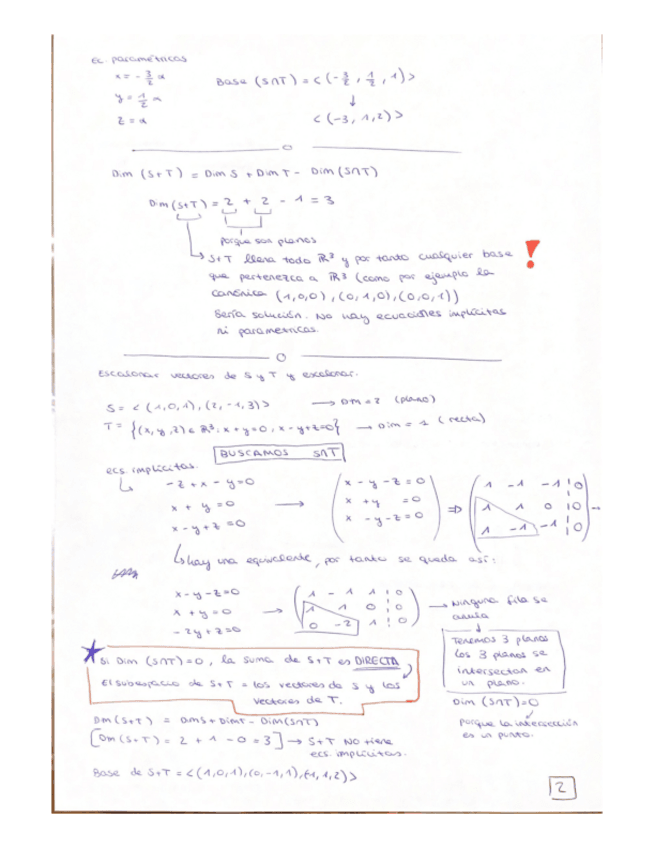 Ec. paramétricas
x = - 3/2 α
y = 1/2 α
z = α
Base (S∩T) = < (-3/2, 1/2, 1) >
↓
< (-3, 1, 2) >
Dim (S+T) = Dim S + Dim T - Dim (S∩T)
Dim (S+T) = 2 + 2 - 1 = 3
porque son planos
S+T llena todo ℝ³ y por tanto cualquier base
que pertenezca a ℝ³ (como por ejemplo la
canónica (1,0,0), (0,1,0), (0,0,1))
sería solución. No hay ecuaciones implícitas
ni paramétricas.
!
Escalonar vectores de S y T y escalonar.
S = < (1,0,1), (2,-1,3) > → Dim = 2 (plano)
T = {(x,y,z) ∈ ℝ³: x+y=0, x-y+z=0} → Dim = 1 (recta)
BUSCAMOS S∩T
ecs. implícitas.
-z + x - y = 0
x + y = 0
x - y + z = 0
→
x - y - z = 0
x + y = 0
x - y - z = 0
⇒
1 -1 -1 | 0
1 1 0 | 0
1 -1 -1 | 0
hay una equivalente, por tanto se queda así:
x - y - z = 0
x + y = 0
- 2y + z = 0
→
1 - 1 1 | 0
1 1 0 | 0
0 -2 1 | 0
→ Ninguna fila se
anula
Tenemos 3 planos
los 3 planos se
intersectan en
un plano.
Dim (S∩T) = 0
porque la intersección
es un punto.
Si Dim (S∩T) = 0, la suma de S+T es DIRECTA
El subespacio de S+T = los vectores de S y los
vectores de T.
Dim (S+T) = Dim S + Dim T - Dim (S∩T)
[Dim (S+T) = 2 + 1 - 0 = 3] → S+T NO tiene
ecs. implícitas.
Base de S+T = < (1,0,1), (0,-1,1), (-1,1,2) >
2